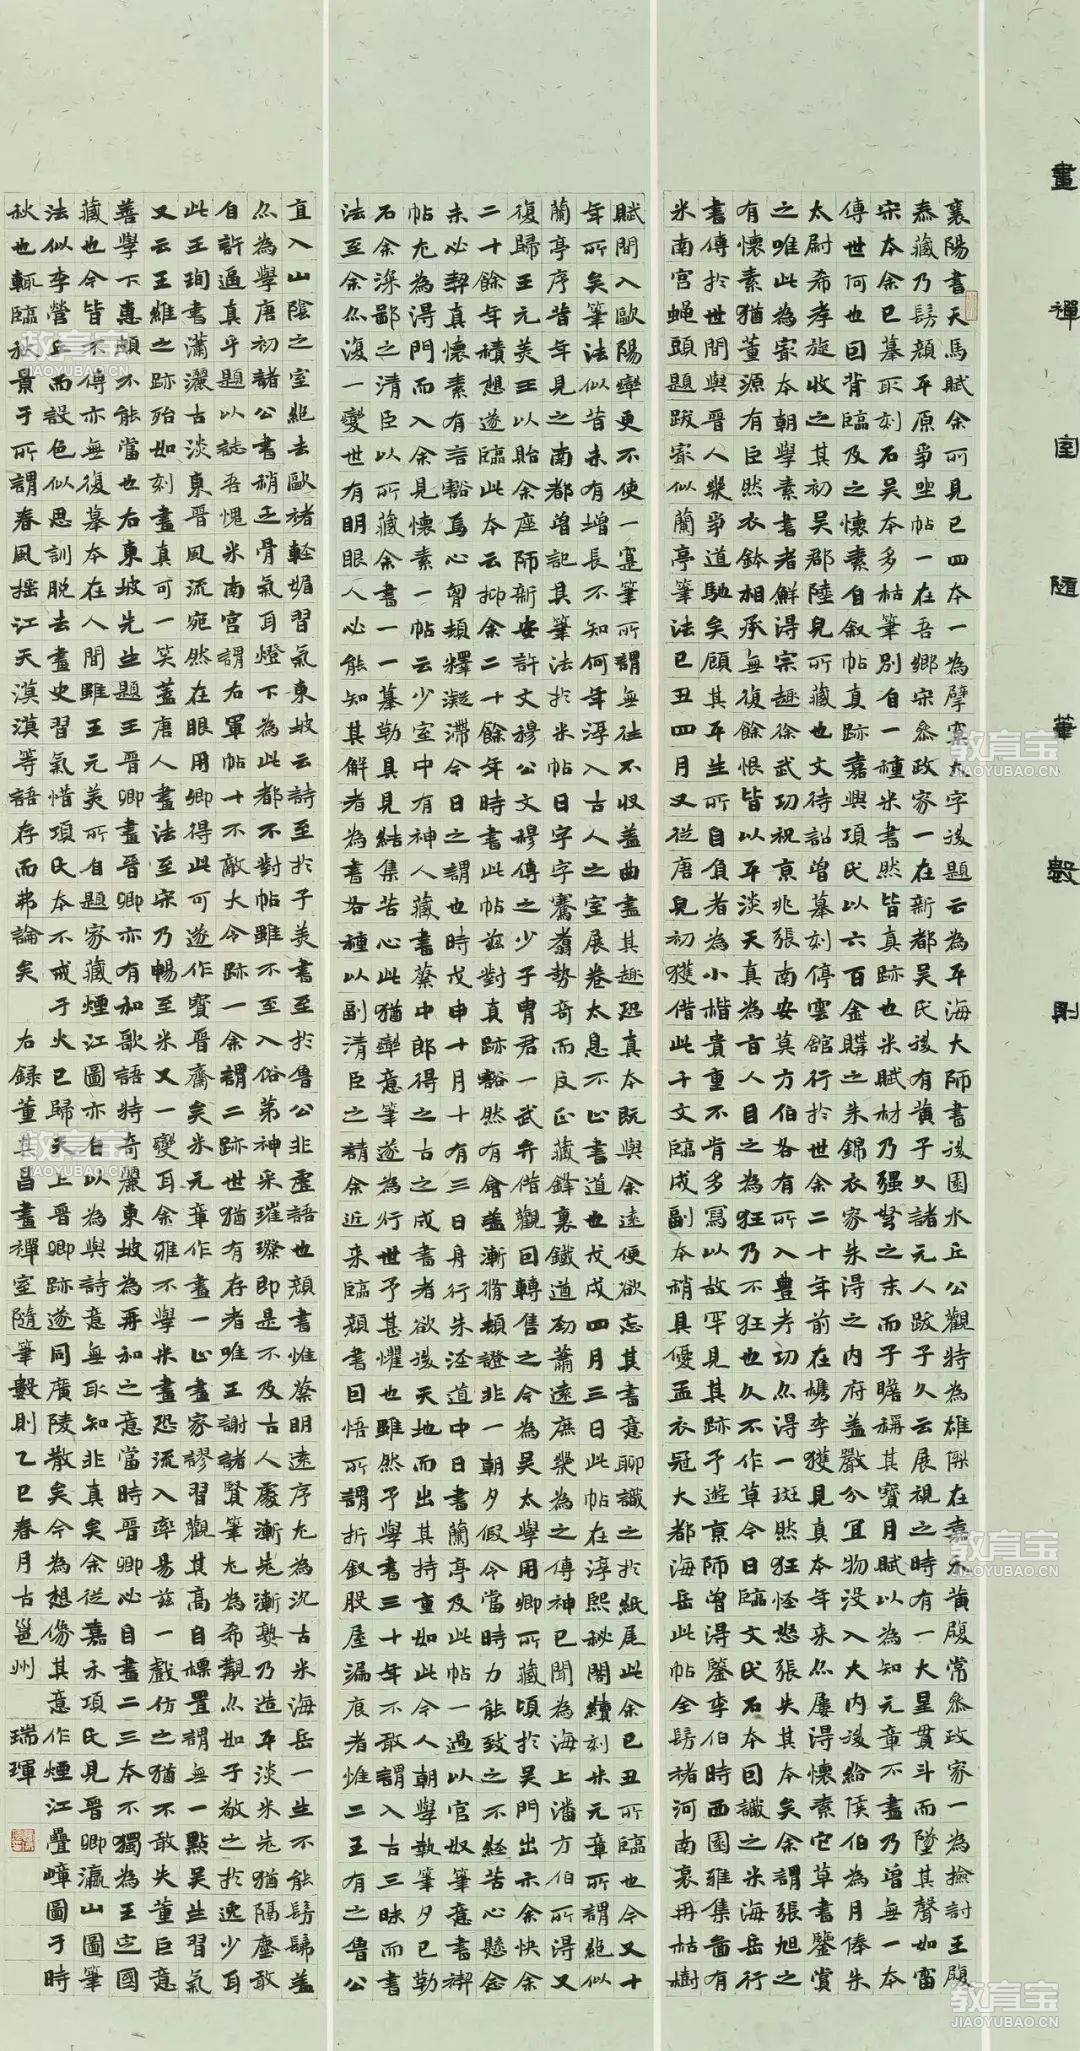 畫禪室隨筆數則
襄陽書天馬賦余所見已四本一為擘窠大字後題云為平海大師書後園水丘公觀特為雄傑在嘉禾黃履常參政家一為撿討王履
泰藏乃鬅顏平原爭坐帖一在吾鄉宋參政家一在新都吳氏後有黃子久諸元人跋子久云展視之時有一大星貫斗而墜其聲如雷
宋本余已摹取刻石吳本多枯筆別自一種米書然皆真跡也米賦材乃強弩之末而子瞻稱其寶月賦以為知元章不盡乃曾無一本
傳世何也回背臨及之懷素自叙帖真跡嘉興項氏以六百金購之朱錦衣家朱得之內府蓋嚴分宜物沒入大內後給侯伯為月俸朱
太尉希孝旋收之其初吳郡陸兒所藏也文待詔曾摹刻停雲館行於世余二十年前在檇李獲見真本年來亦屢得懷素它草書鑒賞
之唯此為寂本朝學素書者鮮得宗趣徐武功祝京兆張南安莫方伯各有所入豊考功亦得一斑然狂怪怒張失其本矣余謂張旭之
有懷素猶董源有臣然衣鉢相承無復餘恨皆以平淡天真為旨人目之為狂乃不狂也久不作草今日臨文氏石本因識之米海岳行
書傳於世間與晉人幾爭道馳矣顧其平生所自負者為小楷貴重不肯多寫以故罕見其跡予遊京師曾得鑒李伯時西園雅集圖有
米南宮蝇頭題跋寂似蘭亭筆法已丑四月又從唐兒初獲借此千文臨成副本稍具優孟衣冠大都海岳此帖全鬅褚河南裏冉枯樹
賦間入歐陽率更不使一蹇筆所謂無往不收蓋曲盡其趣恐真本既與余遠便欲忘其書意聊識之於紙尾此余已丑所臨也今又十
年所矣筆法似昔未有增長不知何年得入古人之室展卷太息不止書道也戊戌四月三日此帖在淳熙秘閣續刻米元章所謂絕似
蘭亭序昔年見之南都曾記其筆法於米帖曰字字騫翥勢奇而反正藏鋒裏鐵遒勁蕭遠庶幾為之傳神已聞為海上潘方伯所得又
復歸王元美王以貽余座師新安許文穆公文穆傳之少子胄君一武弁借觀回轉售之今為吳太學用卿所藏頃於吳門出示余快余
二十餘年積想遂臨此本云抑余二十餘年時書此帖茲對真跡豁然有會蓋漸脩頓證非一朝夕假令當時力能致之不經苦心懸念
未必契真懷素有言豁焉心胷頓釋凝滯今日之謂也時戊申十月十有三日舟行朱涇道中日書蘭亭及此帖一過以官奴筆意書禊
帖尤為得門而入余見懷素一帖云少室中有神人藏書蔡中郎得之古之成書者欲後天地而出其持重如此今人朝學執筆夕已勒
石余深鄙之清臣以所藏余書一一摹勒具見結集苦心此猶率意筆遂為行世予甚懼也雖然予學書三十年不敢謂入古三昧而書
法至余亦復一變世有明眼人必能知其解者為書各種以副清臣之請余近来臨顏書因悟所謂折釵股屋漏痕者惟二王有之魯公
直入山陰之室絕去歐褚輕媚習氣東坡云詩至於子美書至於魯公非虛語也顏書惟蔡明遠序尤為沉古米海岳一生不能鬅髴蓋
亦為學唐初諸公書稍乏骨氣耳燈下為此都不對帖雖不至入俗第神采璀璨即是不及古人處漸老漸熟乃造平淡米老猶隔塵敢
自許逼真乎題以誌吾愧米南宮謂右軍帖十不敵大令跡一余謂二跡世猶有存者唯王謝諸賢筆尤為希覯亦如子敬之於逸少耳
此王珣書瀟灑古淡東晉風流宛然在眼用卿得此可遂作寶晉齋矣米元章作畫一正畫家謬習觀其高自標置謂無一點吳生習氣
又云王維之跡殆如刻畫真可一笑蓋唐人畫法至宋乃暢至米又一變耳余雅不學米畫恐流入率易茲一戲仿之猶不敢失董巨意
善學下惠頗不能當也右東坡先生題王晉卿畫晉卿亦有和歌語特奇麗東坡為再和之意當時晉卿必自畫二三本不獨為王定國
藏也今皆不傳亦無復摹本在人間雖王元美所自題家藏煙江圖亦自以為與詩意無取知非真矣余從嘉禾項氏見晉卿瀛山圖筆
法似李營丘而設色似思訓脫去畫史習氣惜項氏本不戒于火已歸天上晉卿跡遂同廣陵散矣今為想像其意作煙江疊嶂圖于時
秋也輒臨秋景于所謂春風搖江天漠漠等語存而弗論矣 右録董其昌畫禪室隨筆數則乙巳春月古邕州 瑞琿
教育宝
JIAOYUBAO.CN
教育宝
JIAOYUBAO.CN
教育宝
JIAOYUBAO.CN
教育宝
JIAOYUBAO.CN
教育宝
JIAOYUBAO.CN